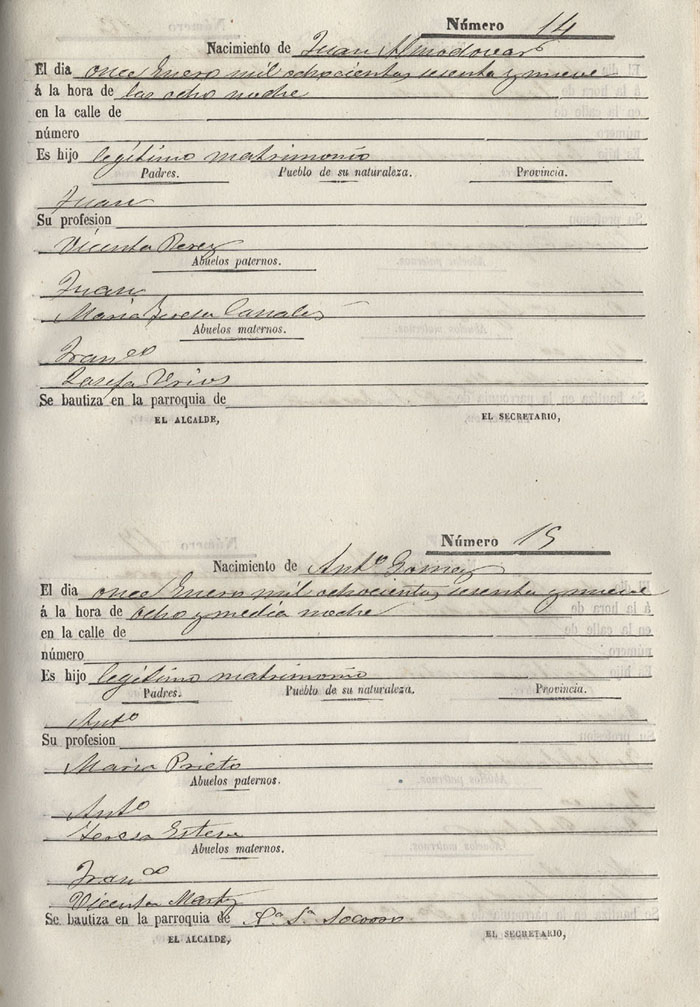 Número 14
Nacimiento de Juan Almodovar
El dia once Enero mil ochocientos sesenta y nueve
á la hora de las ocho noche
en la calle de
número
Es hijo legítimo matrimonio
Padres. Pueblo de su naturaleza. Provincia.
Juan
Su profesion
Vicenta Perez
Abuelos paternos.
Juan
Maria Teresa Canales
Abuelos maternos.
Franco
Josefa Urios
Se bautiza en la parroquia de
EL ALCALDE, EL SECRETARIO,
Número 15
Nacimiento de Anto Gomez
El dia once Enero mil ochocientos sesenta y nueve
á la hora de ocho y media noche
en la calle de
número
Es hijo legítimo matrimonio
Padres. Pueblo de su naturaleza. Provincia.
Anto
Su profesion
Maria Prieto
Abuelos paternos.
Anto
Teresa Esteve
Abuelos maternos.
Franco
Vicenta Martz
Se bautiza en la parroquia de Sa Socorro
EL ALCALDE, EL SECRETARIO,